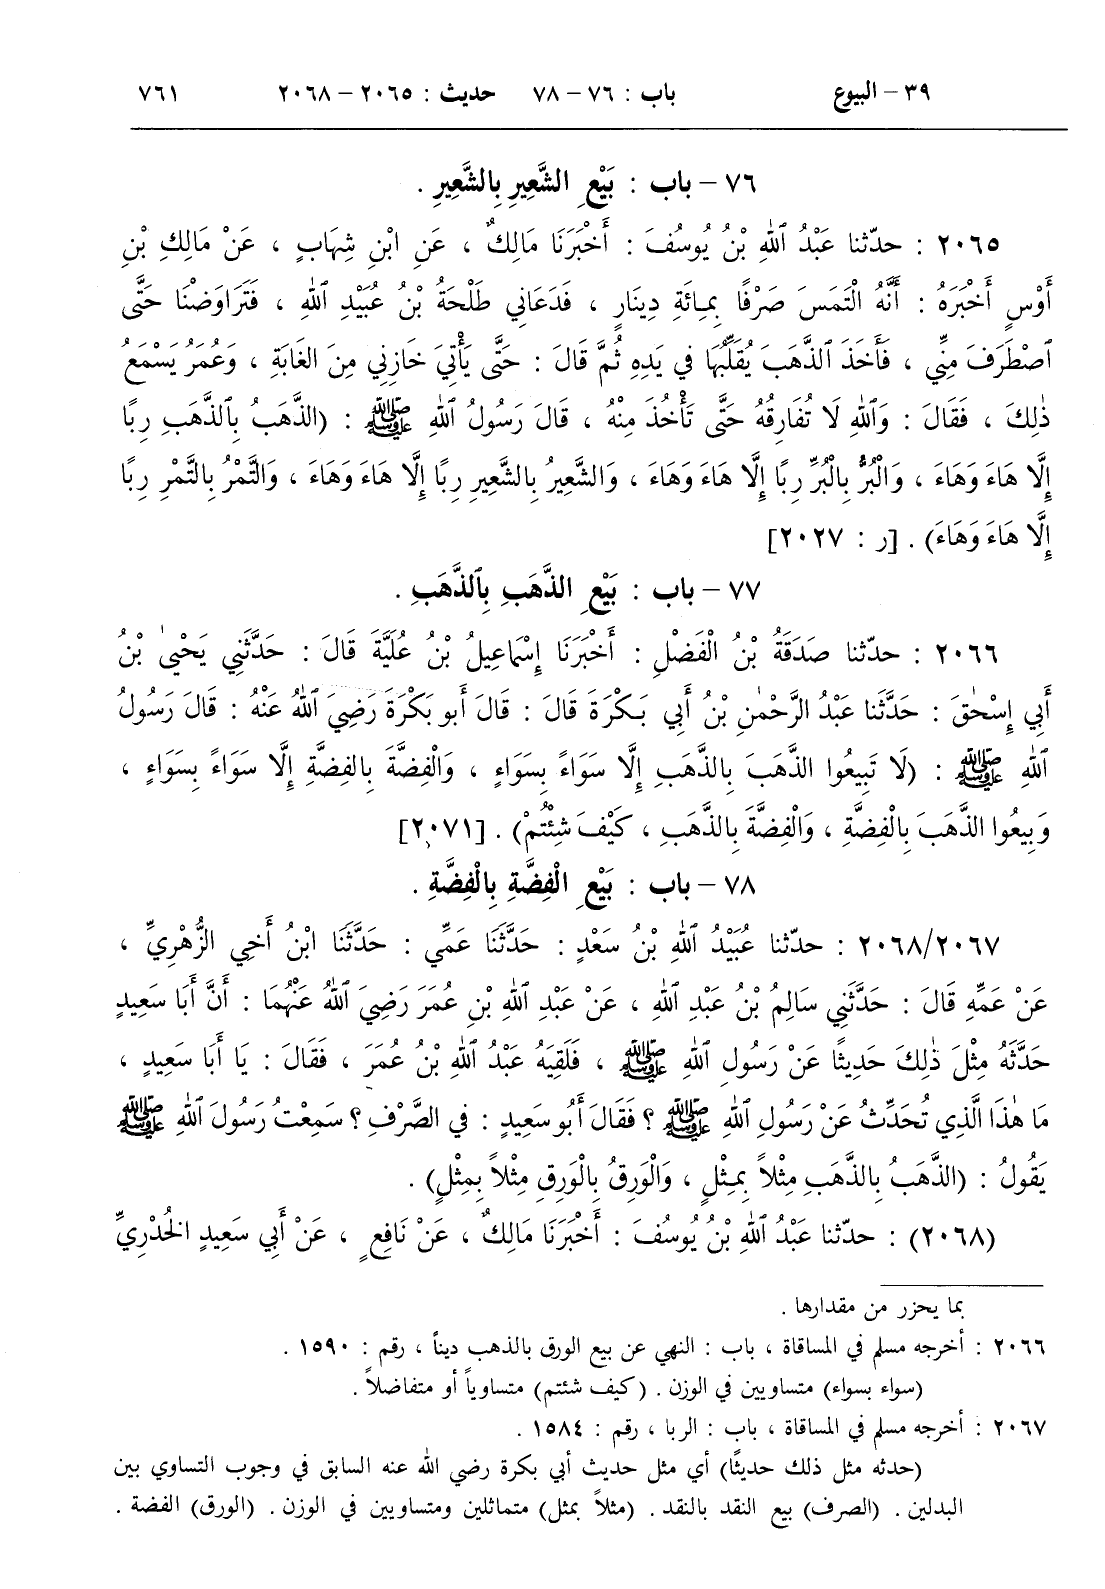 ٣٩ – البيوع باب : ٧٦ – ٧٨ حديث : ٢٠٦٥ – ٢٠٦٨ ٧٦١
٧٦ – باب : بَيْعِ الشَّعِيرِ بِالشَّعِيرِ .
٢٠٦٥ : حدّثنا عَبْدُ ٱللهِ بْنُ يُوسُفَ : أَخْبَرَنَا مَالِكٌ ، عَنِ ابْنِ شِهَابٍ ، عَنْ مَالِكِ بْنِ
أَوْسٍ أَخْبَرَهُ : أَنَّهُ الْتَمَسَ صَرْفًا بِمِائَةِ دِينَارٍ ، فَدَعَانِي طَلْحَةُ بْنُ عُبَيْدِ ٱللهِ ، فَتَرَاوَضْنَا حَتَّى
ٱصْطَرَفَ مِنِّي ، فَأَخَذَ ٱلذَّهَبَ يُقَلِّبُهَا فِي يَدِهِ ثُمَّ قَالَ : حَتَّى يَأْتِيَ خَازِنِي مِنَ الْغَابَةِ ، وَعُمَرُ يَسْمَعُ
ذٰلِكَ ، فَقَالَ : وَٱللهِ لَا تُفَارِقُهُ حَتَّى تَأْخُذَ مِنْهُ ، قَالَ رَسُولُ ٱللهِ ﷺ : (الذَّهَبُ بِٱلذَّهَبِ رِبًا
إِلَّا هَاءَ وَهَاءَ ، وَالْبُرُّ بِالْبُرِّ رِبًا إِلَّا هَاءَ وَهَاءَ ، وَالشَّعِيرُ بِالشَّعِيرِ رِبًا إِلَّا هَاءَ وَهَاءَ ، وَالتَّمْرُ بِالتَّمْرِ رِبًا
إِلَّا هَاءَ وَهَاءَ) . [ر : ٢٠٢٧]
٧٧ – باب : بَيْعِ الذَّهَبِ بِٱلذَّهَبِ .
٢٠٦٦ : حدّثنا صَدَقَةُ بْنُ الْفَضْلِ : أَخْبَرَنَا إِسْمَاعِيلُ بْنُ عُلَيَّةَ قَالَ : حَدَّثَنِي يَحْيىٰ بْنُ
أَبِي إِسْحٰقَ : حَدَّثَنَا عَبْدُ الرَّحْمٰنِ بْنُ أَبِي بَكْرَةَ قَالَ : قَالَ أَبو بَكْرَةَ رَضِيَ ٱللهُ عَنْهُ : قَالَ رَسُولُ
ٱللهِ ﷺ : (لَا تَبِيعُوا الذَّهَبَ بِالذَّهَبِ إِلَّا سَوَاءً بِسَوَاءٍ ، وَالْفِضَّةَ بِالْفِضَّةِ إِلَّا سَوَاءً بِسَوَاءٍ ،
وَبِيعُوا الذَّهَبَ بِالْفِضَّةِ ، وَالْفِضَّةَ بِالذَّهَبِ ، كَيْفَ شِئْتُمْ) . [٢٠٧١]
٧٨ – باب : بَيْعِ الْفِضَّةِ بِالْفِضَّةِ .
٢٠٦٨/٢٠٦٧ : حدّثنا عُبَيْدُ ٱللهِ بْنُ سَعْدٍ : حَدَّثَنَا عَمِّي : حَدَّثَنَا ابْنُ أَخِي الزُّهْرِيِّ ،
عَنْ عَمِّهِ قَالَ : حَدَّثَنِي سَالِمُ بْنُ عَبْدِ ٱللهِ ، عَنْ عَبْدِ ٱللهِ بْنِ عُمَرَ رَضِيَ ٱللهُ عَنْهُمَا : أَنَّ أَبَا سَعِيدٍ
حَدَّثَهُ مِثْلَ ذٰلِكَ حَدِيثًا عَنْ رَسُولِ ٱللهِ ﷺ ، فَلَقِيَهُ عَبْدُ ٱللهِ بْنُ عُمَرَ ، فَقَالَ : يَا أَبَا سَعِيدٍ ،
مَا هٰذَا الَّذِي تُحَدِّثُ عَنْ رَسُولِ ٱللهِ ﷺ ؟ فَقَالَ أَبُو سَعِيدٍ : فِي الصَّرْفِ ؟ سَمِعْتُ رَسُولَ ٱللهِ ﷺ
يَقُولُ : (الذَّهَبُ بِالذَّهَبِ مِثْلاً بِمِثْلٍ ، وَالْوَرِقُ بِالْوَرِقِ مِثْلاً بِمِثْلٍ) .
(٢٠٦٨) : حدّثنا عَبْدُ ٱللهِ بْنُ يُوسُفَ : أَخْبَرَنَا مَالِكٌ ، عَنْ نَافِعٍ ، عَنْ أَبِي سَعِيدٍ الخُدْرِيِّ
بما يحزر من مقدارها .
٢٠٦٦ : أخرجه مسلم في المساقاة ، باب : النهي عن بيع الورق بالذهب ديناً ، رقم : ١٥٩٠ .
(سواء بسواء) متساويين في الوزن . (كيف شئتم) متساوياً أو متفاضلاً .
٢٠٦٧ : أخرجه مسلم في المساقاة ، باب : الربا ، رقم : ١٥٨٤ .
(حدثه مثل ذلك حديثًا) أي مثل حديث أبي بكرة رضي الله عنه السابق في وجوب التساوي بين
البدلين . (الصرف) بيع النقد بالنقد . (مثلاً بمثل) متماثلين ومتساويين في الوزن . (الورق) الفضة .